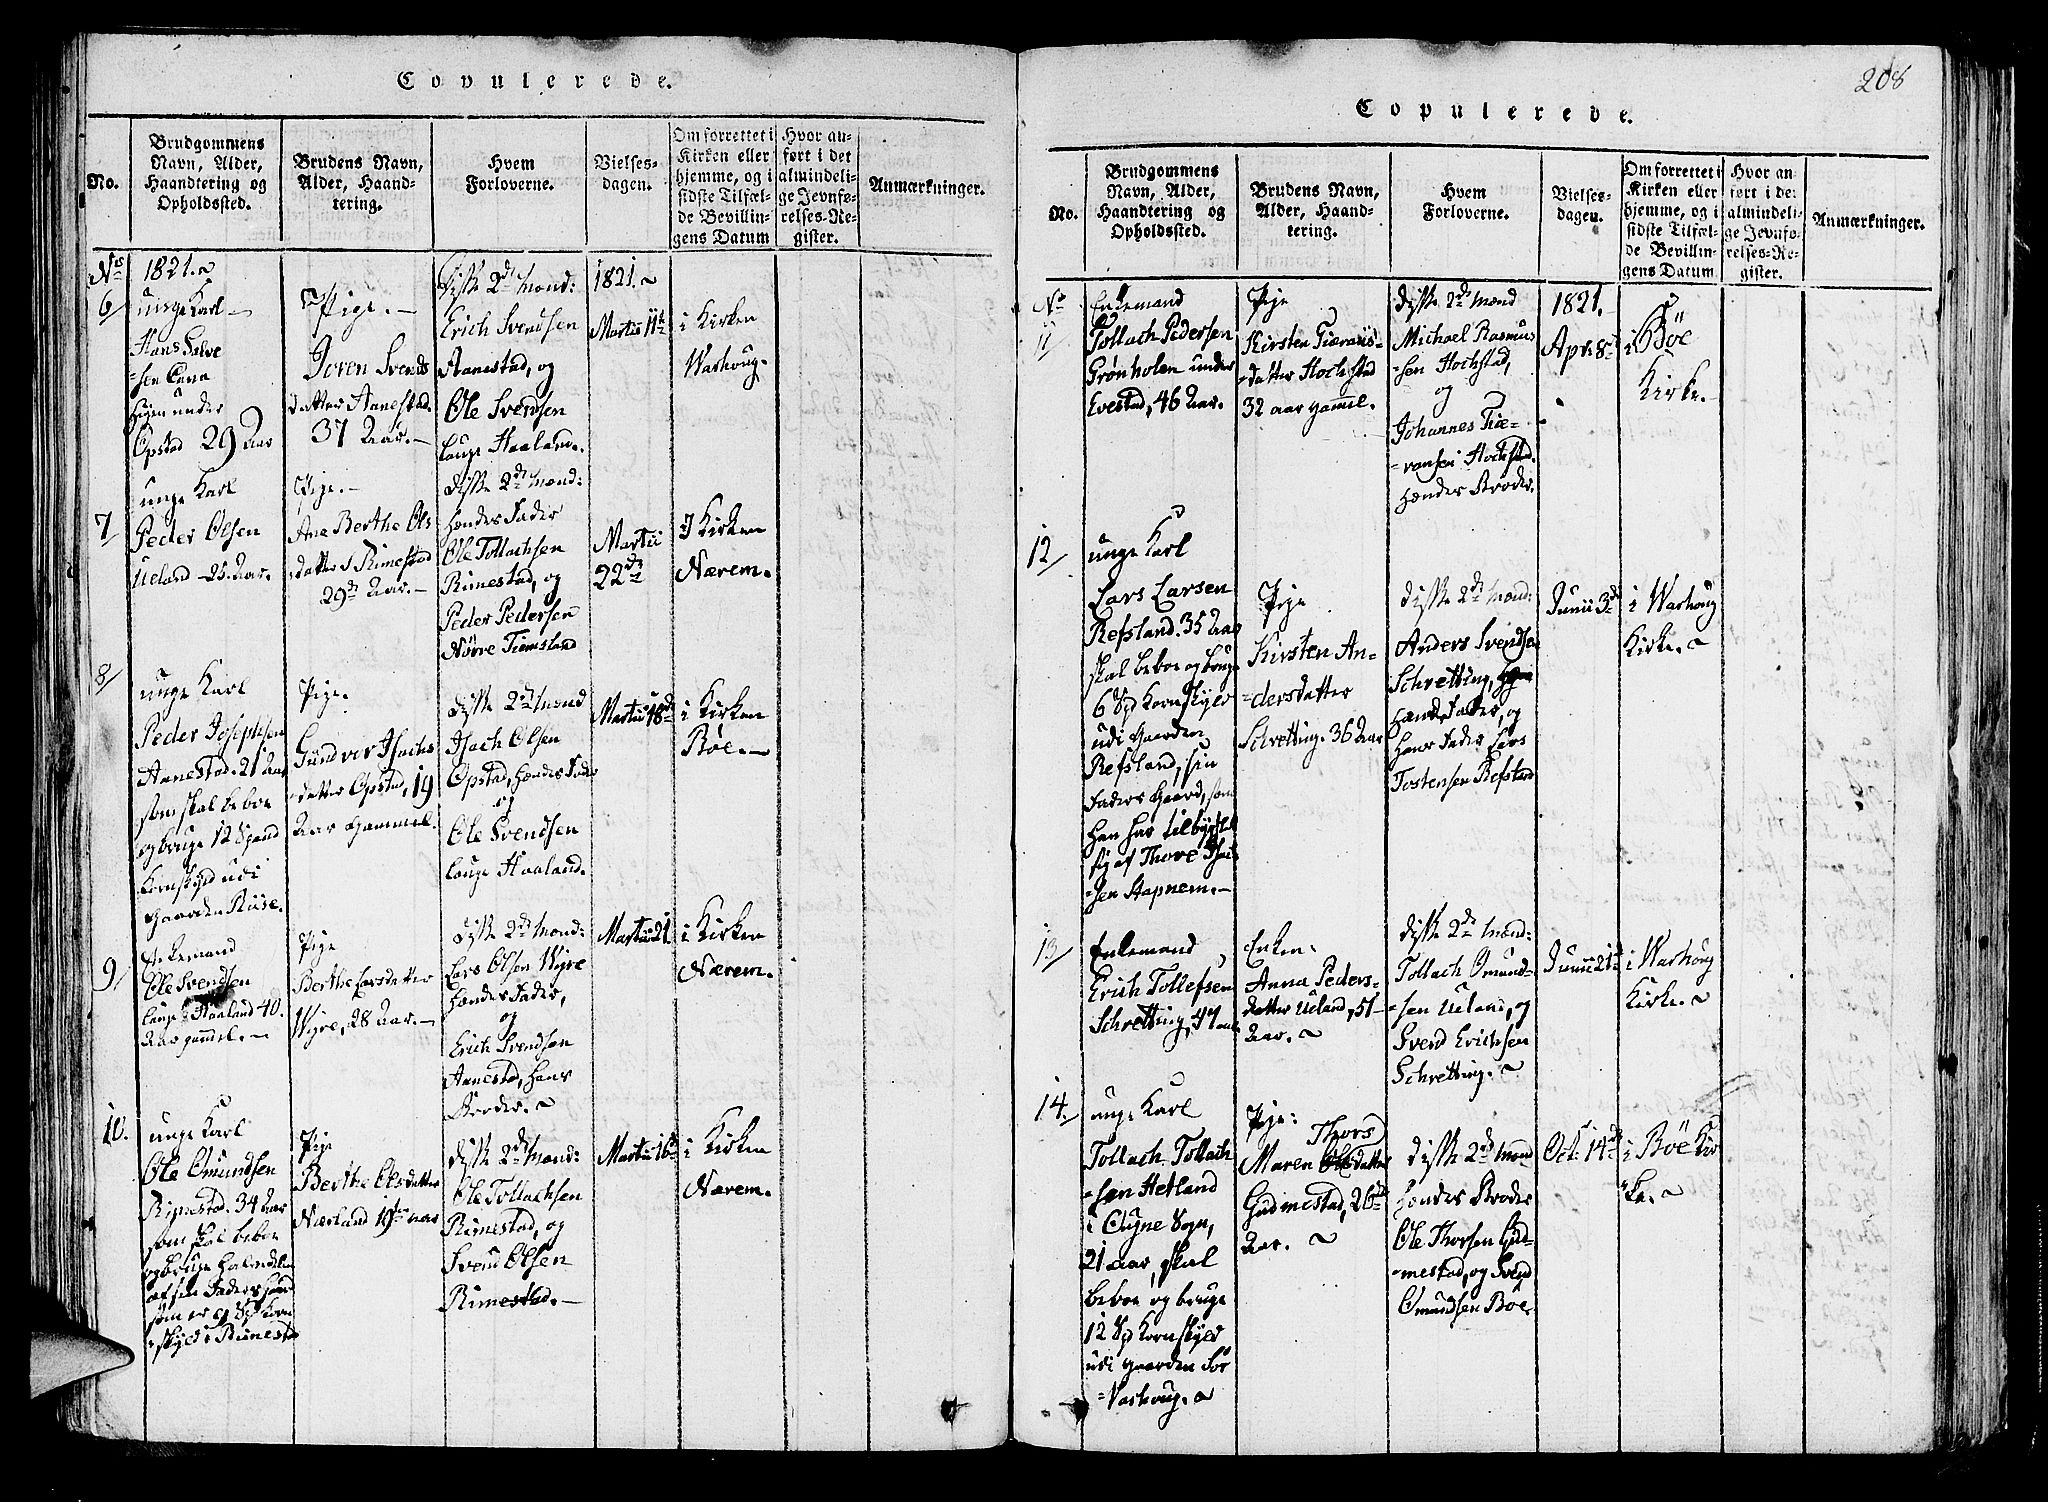 Copulerede.
No.
Brudgommens
Navn, Alder,
Haandtering og
Opholdssted.
Brudens Navn,
Alder, Haand-
tering.
Hvem
Forloverne.
Vielses-
dagen.
Om forrettet i
Kirken eller
hjemme, og i
sidste Tilfæl-
de Bevillin-
gens Datum
Hvor an-
ført i det
almindeli-
ge Jevnfø-
relses-Re-
gister.
Anmærkninger.
1821.
6/
unge Karl
Hans Salve
=sen
under
Opstad 29 Aar
Pige.
Joren Svends
datter Aanestad.
37 Aar.
diſse 2de Mænd:
Erich Svendsen
Aanestad, og
Ole Svendsen
Lauge Haaland.
1821.
Martii 11te
i Kirken
Warhoug.
7
unge Karl
Peder Olsen
Ueland 25. Aar.
Pige.
Ane Berthe Ols
datter Rimestad
29de Aar.
diſse 2de Mænd:
hendes Fader
Ole Tollachsen
Rimestad, og
Peder Pedersen
Nörre Tiemsland
Martii
22de
I Kirken
Nærem.
8/
unge Karl
Peder Josephsen
Aanestad. 21 Aar
som skal beboe
og bruge 12 Spand
Kornskyld udi
Gaarden Riise.
Pige.
Gundvor Isachs
=datter Opstad, 19
Aar gammel.
diſse 2de Mænd
Isach Olsen
Opstad, hendes Fader
og
Ole Svendsen
Lauge Haaland.
Martii 18de
i Kirken
Böe.
9/
Enkemand
Ole Svendsen
Lauge Haaland 40.
Aar gammel.
Pige
Berthe Larsdatter
Wigre, 28 Aar.
diſse 2de Mænd:
Lars Olsen Wigre
hendes Fader,
og
Erich Svendsen
Aanestad, hans
Broder.
Martii 21
i Kirken
Nærem.
10.
unge Karl
Ole Omundsen
Rimestad. 34 Aar
som skal beboe
og bruge halvdelen
af sin Faders
som er 9 Sp Korn
skyld i Rimestad
Pige
Berthe Olsdatter
Nærland 19te aar
diſse 2de Mænd:
Ole Tollachsen
Rimestad, og
Svend Olsen
Rimestad.
Martii 16de
i Kirken
Nærem.
208
Copulerede.
No.
Brudgommens
Navn, Alder,
Haandtering og
Opholdssted.
Brudens Navn,
Alder, Haand-
tering.
Hvem
Forloverne.
Vielses-
dagen.
Om forrettet i
Kirken eller
hjemme, og i
sidste Tilfæl-
de Bevillin-
gens Datum
Hvor an-
ført i det
almindeli-
ge Jevnfø-
relses-Re-
gister.
Anmærkninger.
No
11/
Enkemand
Tollach Pedersen
Grönholen under
Evestad, 46 Aar.
Pige
Kirsten Tiærans-
=datter Hochstad
32 aar gammel.
diſse 2de Mænd
Michael Rasmus
=sen Hochstad,
og
Johannes Tiæ-
=ransen Hochstad.
hendes Broder.
1821.
Apr: 8de
i Böe
Kirke.
12/
unge Karl
Lars Larsen
Refsland. 35 Aar
skal beboe og bruge
6 Sp Kornskyld
udi Gaarden
Refsland, sin
Faders Gaard, som
han har tilbyxlet
sig af Thore
=sen Hapnem.
Pige
Kirsten An-
=dersdatter
Schretting. 36 Aar
diſse 2de Mænd:
Anders Svendsen
Schretting,
hendes Fader, og
hans Fader Lars
Tostensen Refsland
Junii 3de
i Warhoug
Kirke.
13/
Enkemand
Erich Tollefsen
Schretting, 47 aar
Enken:
Anna Peders-
datter Ueland, 51
Aar.
diſse 2de Mænd:
Tollach Omund-
=sen Ueland, og
Svend Erichsen
Schretting.
Junii 21de
i Warhoug
Kirke.
14./
unge Karl
Tollach Tollach
=sen Hetland
i Ougne Sogn,
21 aar, skal
beboe og bruge
12 Sp Kornskyld
udi Gaarden Sör
=Varhoug.
Pige:
Thors
Maren datter
Gudmestad, 26de
Aar.
diſse 2de Mænd
hendes Broder
Ole Thorsen Gud-
=mestad, og Svend
Omundsen Böe.
Oct: 14de
i Böe Kir
=ke.